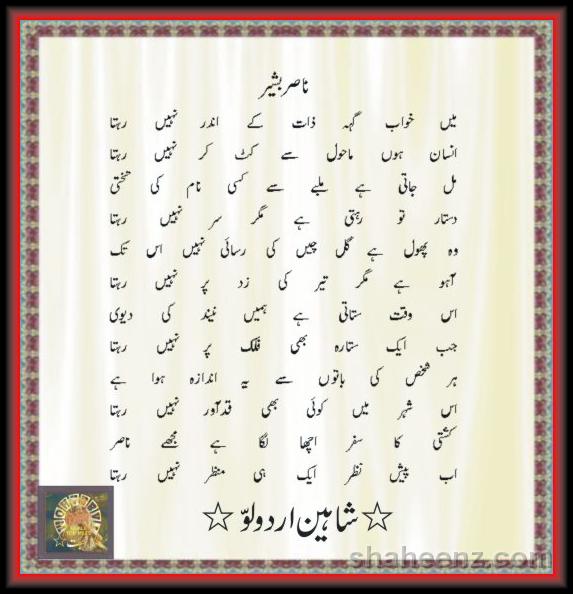 ناصر بشیر
میں خواب گہہ ذات کے اندر نہیں رہتا
انسان ہوں ماحول سے کٹ کر نہیں رہتا
مل جاتی ہے ملبے سے کسی نام کی تختی
دستار تو رہتی ہے مگر سر نہیں رہتا
وہ پھول ہے گل چیں کی رسائی نہیں اس تک
آہو ہے مگر تیر کی زد پر نہیں رہتا
اس وقت ستاتی ہے ہمیں نیند کی دیوی
جب ایک ستارہ بھی فلک پر نہیں رہتا
ہر شخص کی باتوں سے یہ اندازہ ہوا ہے
اس شہر میں کوئی بھی قدآور نہیں رہتا
کشتی کا سفر اچھا لگا ہے مجھے ناصر
اب پیش نظر ایک ہی منظر نہیں رہتا
☆شاہین اردو لوّ☆
shaheenz.com